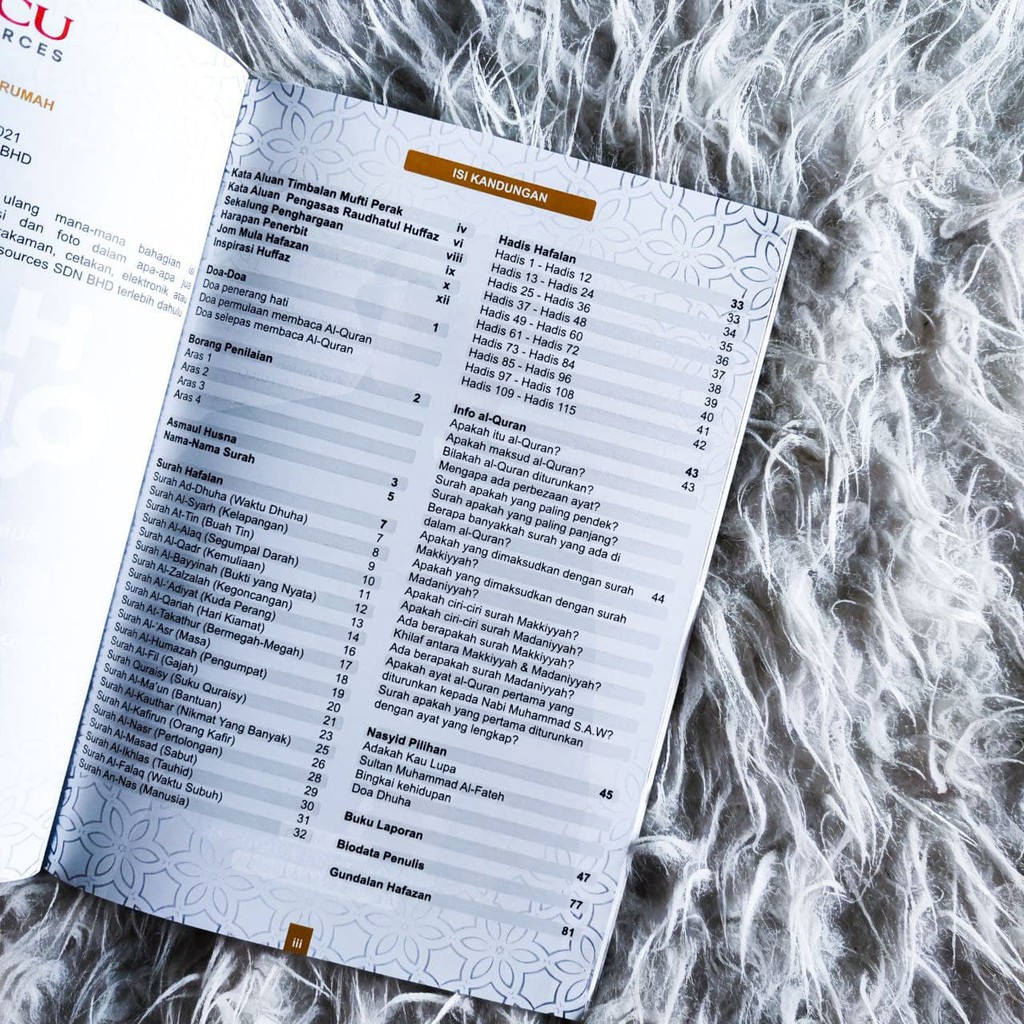 CU
RCES
RUMAH
2021
BHD
ulang mana-mana bahagian
si dan foto dalam apa-apa jua
akaman, cetakan, elektronik atau
sources SDN BHD terlebih dahulu
ISI KANDUNGAN
Kata Aluan Timbalan Mufti Perak iv
Kata Aluan Pengasas Raudhatul Huffaz vi
Sekalung Penghargaan viii
Harapan Penerbit ix
Jom Mula Hafazan x
Inspirasi Huffaz xii
Doa-Doa 1
Doa penerang hati
Doa permulaan membaca Al-Quran
Doa selepas membaca Al-Quran
Borang Penilaian 2
Aras 1
Aras 2
Aras 3
Aras 4
Asmaul Husna 3
Nama-Nama Surah 5
Surah Hafalan 7
Surah Ad-Dhuha (Waktu Dhuha) 7
Surah Al-Syarh (Kelapangan) 8
Surah At-Tin (Buah Tin) 9
Surah Al-Alaq (Segumpal Darah) 10
Surah Al-Qadr (Kemuliaan) 11
Surah Al-Bayyinah (Bukti yang Nyata) 12
Surah Al-Zalzalah (Kegoncangan) 13
Surah Al-'Adiyat (Kuda Perang) 14
Surah Al-Qariah (Hari Kiamat) 16
Surah At-Takathur (Bermegah-Megah) 17
Surah Al-'Asr (Masa) 18
Surah Al-Humazah (Pengumpat) 19
Surah Al-Fil (Gajah) 20
Surah Quraisy (Suku Quraisy) 21
Surah Al-Ma'un (Bantuan) 23
Surah Al-Kauthar (Nikmat Yang Banyak) 25
Surah Al-Kafirun (Orang Kafir) 26
Surah Al-Nasr (Pertolongan) 28
Surah Al-Masad (Sabut) 29
Surah Al-Ikhlas (Tauhid) 30
Surah Al-Falaq (Waktu Subuh) 31
Surah An-Nas (Manusia) 32
Hadis Hafalan 33
Hadis 1 - Hadis 12 33
Hadis 13 - Hadis 24 34
Hadis 25 - Hadis 36 35
Hadis 37 - Hadis 48 36
Hadis 49 - Hadis 60 37
Hadis 61 - Hadis 72 38
Hadis 73 - Hadis 84 39
Hadis 85 - Hadis 96 40
Hadis 97 - Hadis 108 41
Hadis 109 - Hadis 115 42
Info al-Quran 43
Apakah itu al-Quran? 43
Apakah maksud al-Quran?
Bilakah al-Quran diturunkan?
Mengapa ada perbezaan ayat?
Surah apakah yang paling pendek?
Surah apakah yang paling panjang?
Berapa banyakkah surah yang ada di
dalam al-Quran?
Apakah yang dimaksudkan dengan surah 44
Makkiyyah?
Apakah yang dimaksudkan dengan surah
Madaniyyah?
Apakah ciri-ciri surah Makkiyyah?
Apakah ciri-ciri surah Madaniyyah?
Ada berapakah surah Makkiyyah?
Khilaf antara Makkiyyah & Madaniyyah?
Ada berapakah surah Madaniyyah?
Apakah ayat al-Quran pertama yang
diturunkan kepada Nabi Muhammad S.A.W?
Surah apakah yang pertama diturunkan
dengan ayat yang lengkap?
Nasyid Pilihan 45
Adakah Kau Lupa
Sultan Muhammad Al-Fateh
Bingkai kehidupan
Doa Dhuha
Buku Laporan 47
Biodata Penulis 77
Gundalan Hafazan 81
iii